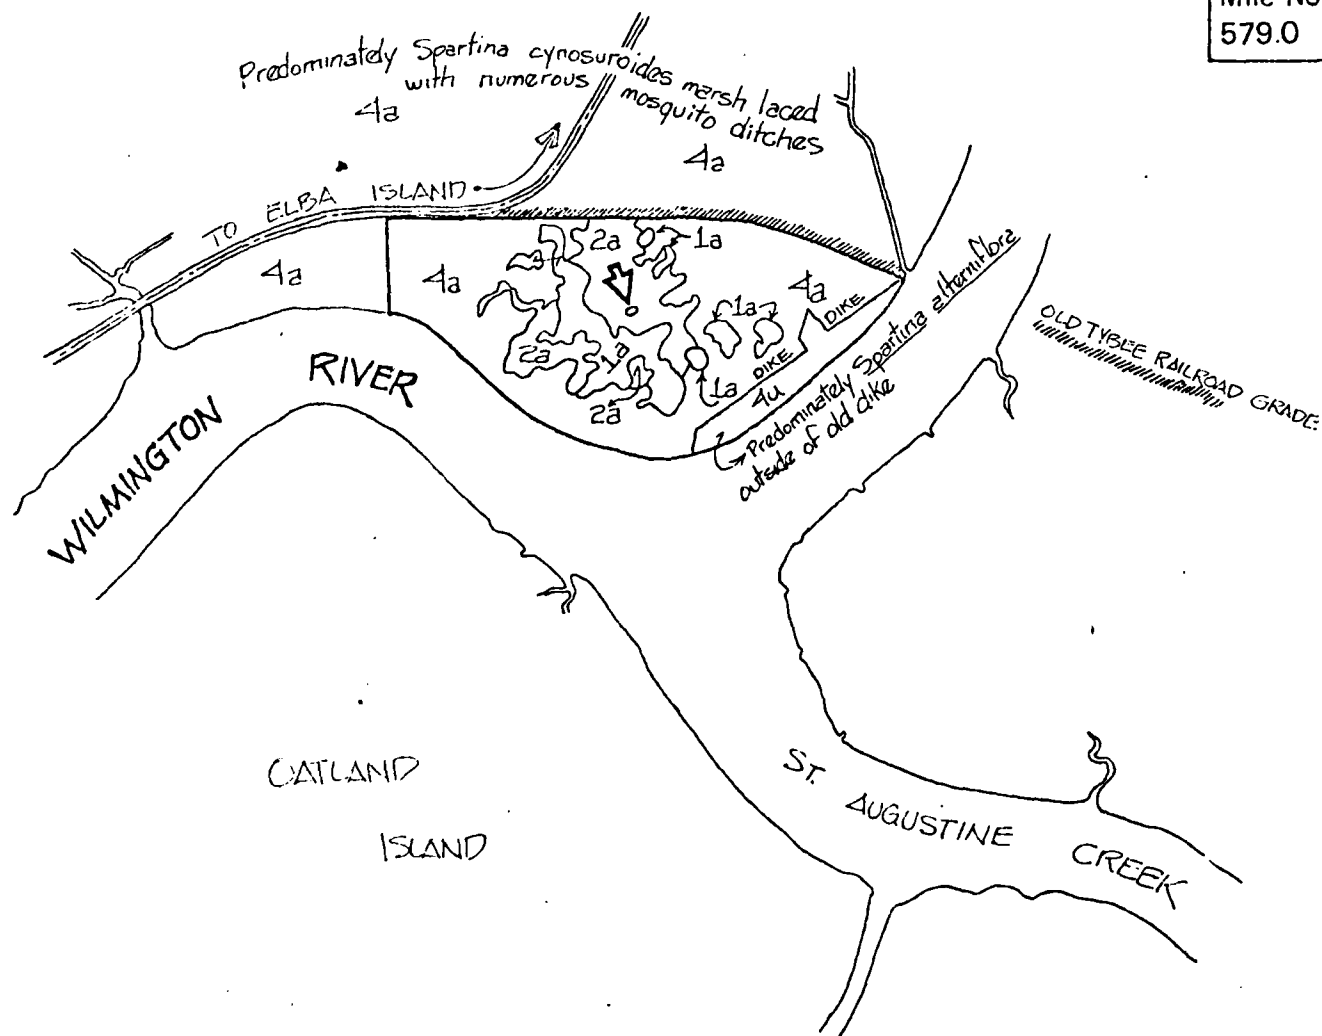 Mile No
579.0
Predominately Spartina cynosuroides marsh laced
with numerous mosquito ditches
4a
4a
TO ELBA ISLAND
4a
4a
2a
1a
4a
1a
DIKE
2a
1a
DIKE
1a
4u
2a
Predominately Spartina alterniflora
outside of old dike
OLD TYBEE RAILROAD GRADE
WILMINGTON RIVER
OATLAND
ISLAND
ST. AUGUSTINE CREEK